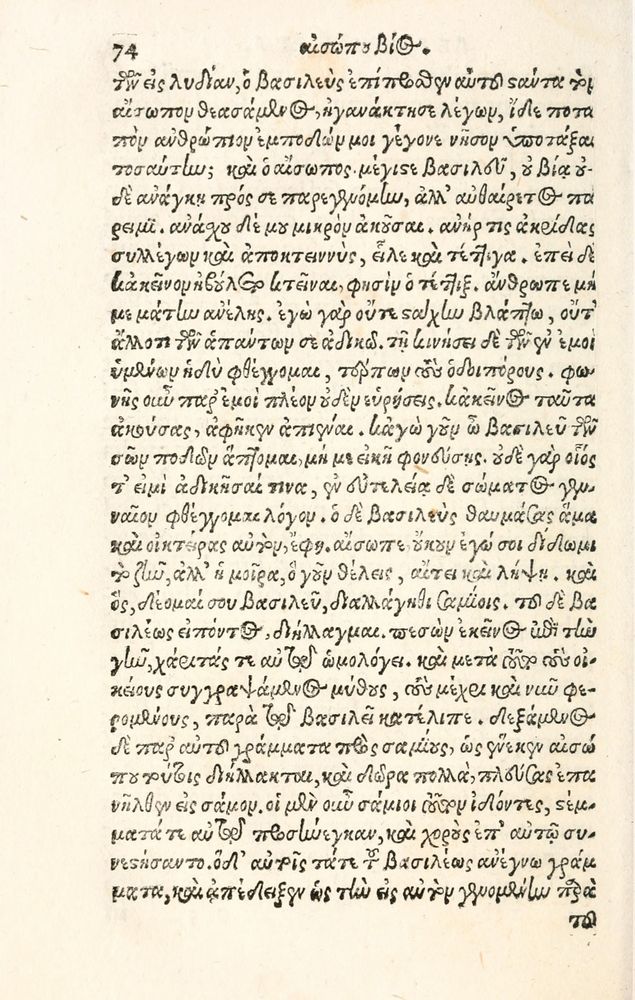 74 αἰσώπου βίος.
τῶν εἰς λυδίαν, ὁ βασιλεὺς ἐπίπροσθεν αὐτοῦ στάντα τὸν
αἴσωπον θεασάμενος, ἠγανάκτησε λέγων, ἴδε ποτα
πὸν ἀνθρώπιον ἐμποδών μοι γέγονε νῆσον ὑποτάξαι
τοσαύτην; καὶ ὁ αἴσωπος. μέγιστε βασιλεῦ, οὐ βίᾳ οὐ-
δὲ ἀνάγκῃ πρός σε παρεγενόμην, ἀλλ' αὐθαίρετος πά
ρειμι. ἀνάχου δέ μου μικρὸν ἀκοῦσαι. ἀνήρ τις ἀκρίδας
συλλέγων καὶ ἀποκτεννὺς, εἷλε καὶ τέττιγα. ἐπεὶ δὲ
κἀκεῖνον ἠβούλετο κτεῖναι, φησὶν ὁ τέττιξ. ἄνθρωπε μή
με μάτην ἀνέλῃς. ἐγὼ γὰρ οὔτε στάχυν βλάπτω, οὔτ'
ἄλλό τι τῶν ἁπάντων σε ἀδικῶ. τῇ κινήσει δὲ τῶν ἐν ἐμοὶ
ὑμένων ἡδὺ φθέγγομαι, τέρπων τοὺς ὁδοιπόρους. φω-
νῆς οὖν παρ' ἐμοὶ πλέον οὐδὲν εὑρήσεις. κἀκεῖνος ταῦτα
ἀκούσας, ἀφῆκεν ἀπιέναι. κἀγὼ γοῦν ὦ βασιλεῦ τῶν
σῶν ποδῶν ἅπτομαι, μή με εἰκῆ φονεύσῃς. οὐδὲ γὰρ οἷός
τ' εἰμὶ ἀδικῆσαί τινα, ἐν εὐτελείᾳ δὲ σώματος γεν-
ναῖον φθέγγομαι λόγον. ὁ δὲ βασιλεὺς θαυμάσας ἅμα
καὶ οἰκτείρας αὐτὸν, ἔφη. αἴσωπε οὐκ ἐγώ σοι δίδωμι
τὸ ζῆν, ἀλλ' ἡ μοῖρα, ὃ γοῦν θέλεις, αἴτει καὶ λήψῃ. καὶ
ὃς, δέομαί σου βασιλεῦ, διαλλάγηθι σαμίοις. τοῦ δὲ βα
σιλέως εἰπόντος, διήλλαγμαι. πεσὼν ἐκεῖνος ἐπὶ τὴν
γῆν, χάριτάς τε αὐτῷ ὡμολόγει. καὶ μετὰ τοῦτο τοὺς οἰ-
κείους συγγραψάμενος μύθους, τοὺς μέχρι καὶ νῦν φε-
ρομένους, παρὰ τῷ βασιλεῖ κατέλιπε. δεξάμενος
δὲ παρ' αὐτοῦ γράμματα πρὸς σαμίους, ὡς ἕνεκεν αἰσώ
που τούτοις διήλλακται, καὶ δῶρα πολλὰ, πλεύσας ἐπα
νῆλθεν εἰς σάμον. οἱ μὲν οὖν σάμιοι τοῦτον ἰδόντες, στέμ-
ματά τε αὐτῷ προσήνεγκαν, καὶ χοροὺς ἐπ' αὐτῷ συ-
νεστήσαντο. ὁ δ' αὐτοῖς τά τε τοῦ βασιλέως ἀνέγνω γράμ
ματα, καὶ ἀπέδειξεν ὡς τὴν εἰς αὐτὸν γενομένην παρὰ
τοῦ